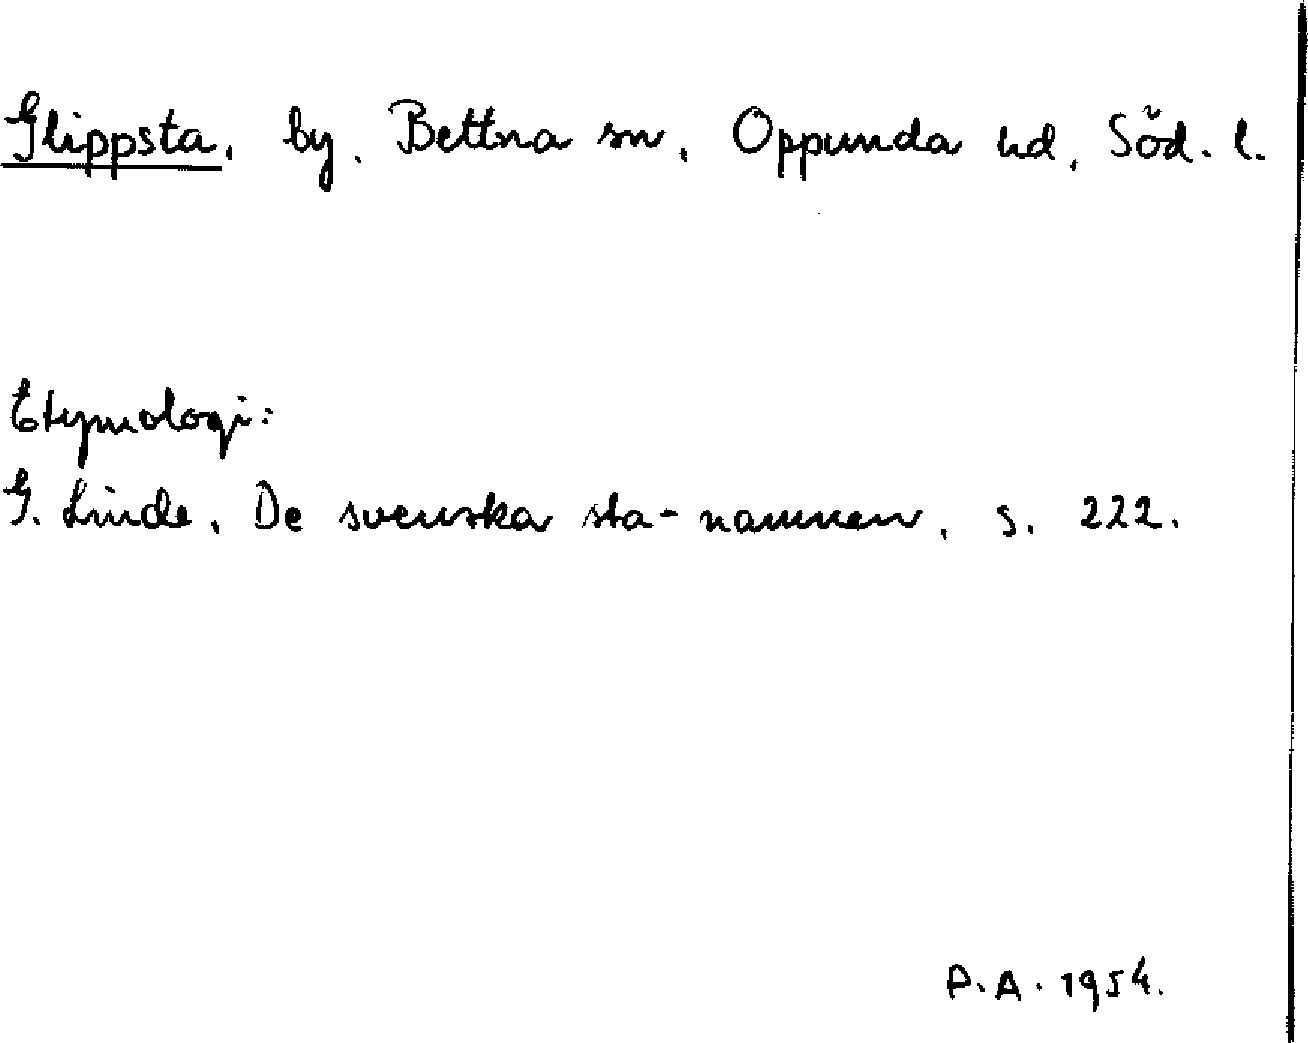 Glippsta, by, Bettna sn, Oppunda hd, Söd. l.
Etymologi:
G. Linde, De svenska sta-namnen, s. 222.
P.A. 1954.